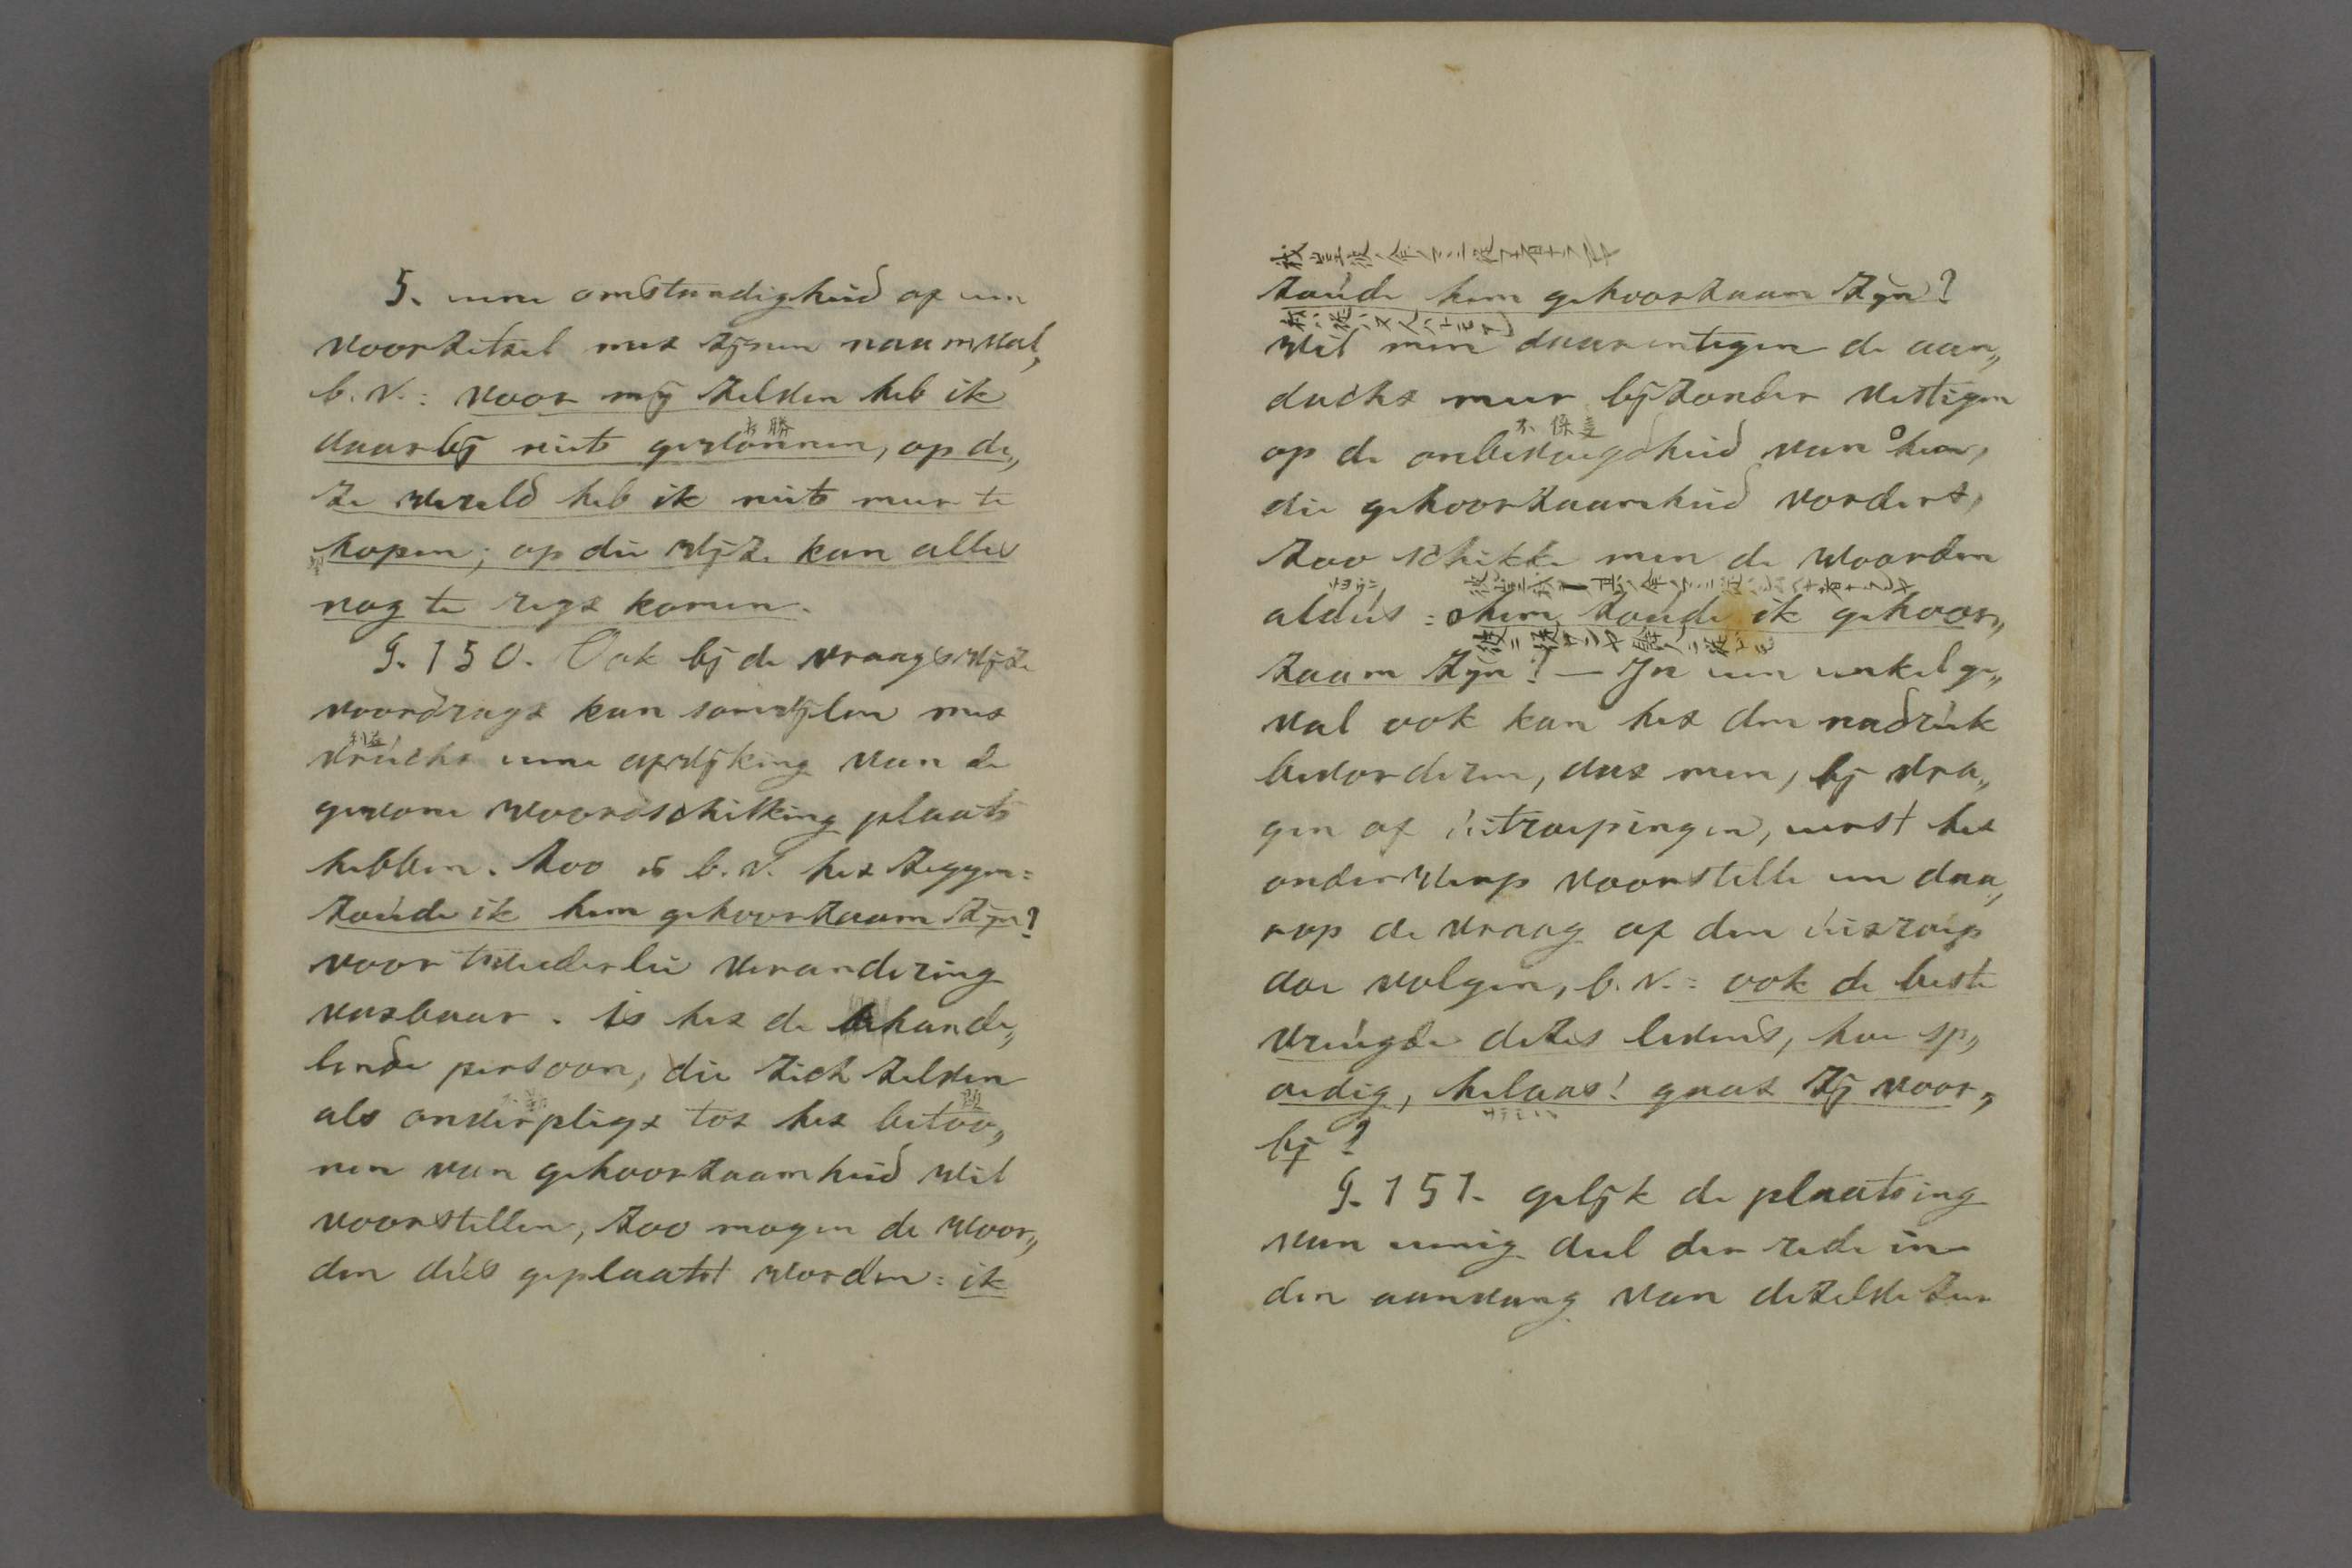 5. eene omstandigheid of een
voorzetsel met zijnen naamval,
b. v.: voor mij zelven heb ik
daarbij niets gewonnen, op de„
ze wereld heb ik niets meer te
hopen; op die wijze kan alles
nog te regt komen.
§. 150. Ook bij de vraagswijze
voordragt kan somwijlen met
vrucht eene afwijking van de
gewone woordschikking plaats
hebben. Zoo is b. v. het zeggen:
zoude ik hem gehoorzaam zijn?
voor tweederlei verandering
vatbaar. is het de behande„
lende persoon, die zich zelven
als onverpligt tot het betoo„
nen van gehoorzaamheid wil
voorstellen, zoo mogen de woor„
den dus geplaatst worden: ik
zoude hem gehoorzaam zijn?
Wil men daarentegen de aan„
dacht meer bijzonder vestigen
不保達
op de onbevoegdheid van hem,
die gehoorzaamheid vordert,
zoo schikke men de woorden
aldus: hem zoude ik gehoor„
zaam zijn? — In een enkel ge„
val ook kan het den nadruk
bevorderen, dat men, bij vra„
gen of uitroepingen, eerst het
onderwerp voorstelle en daa„
rop de vraag of den uitroep
doe volgen, b. v.: ook de beste
vreugde dezes levens, hoe sp„
oedig, helaas! gaat zij voor„
bij?
§. 151. gelijk de plaatsing
van eenig deel der rede in
den aanvang van dezelve zeer